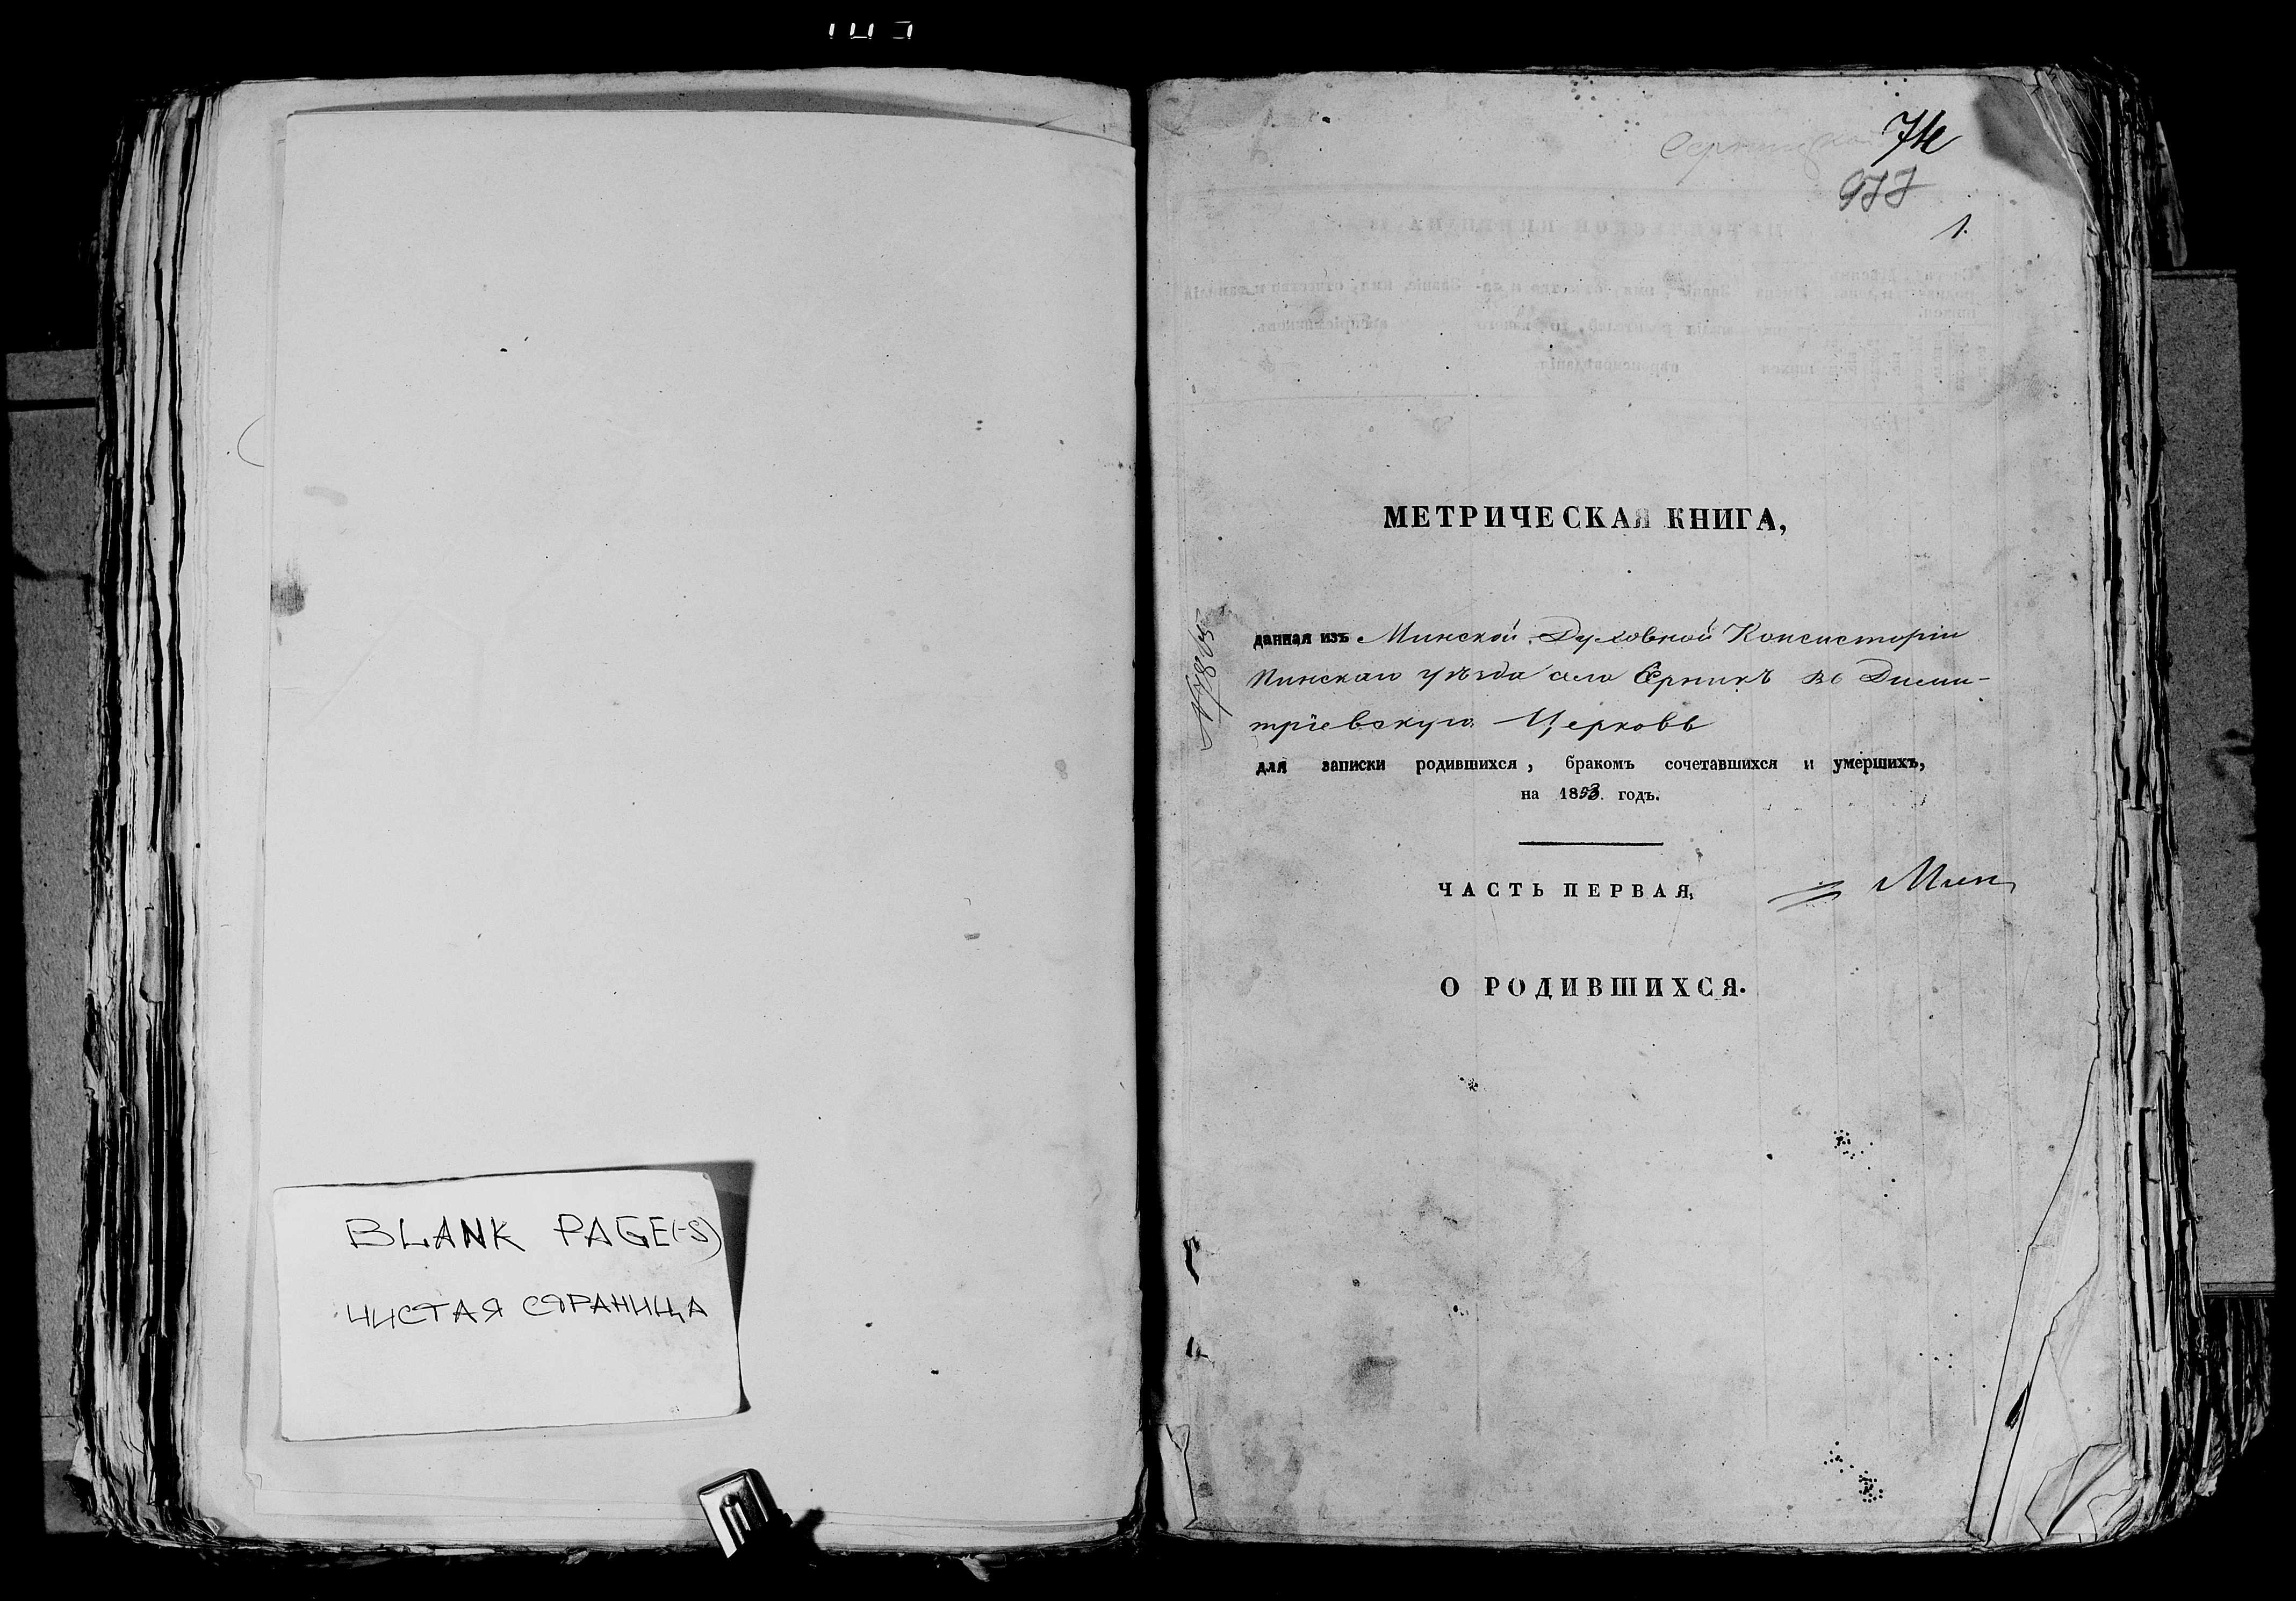 BLANK PAGE(-S)
ЧИСТАЯ СТРАНИЦА
74
977
1.
МЕТРИЧЕСКАЯ КНИГА,
данная изъ Минской Духовной Консисторіи
Пинскаго уѣзда села Серникъ въ Дими-
тріевскую Церковь
для записки родившихся, бракомъ сочетавшихся и умершихъ,
на 1853. годъ.
ЧАСТЬ ПЕРВАЯ,
Мин
О РОДИВШИХСЯ.